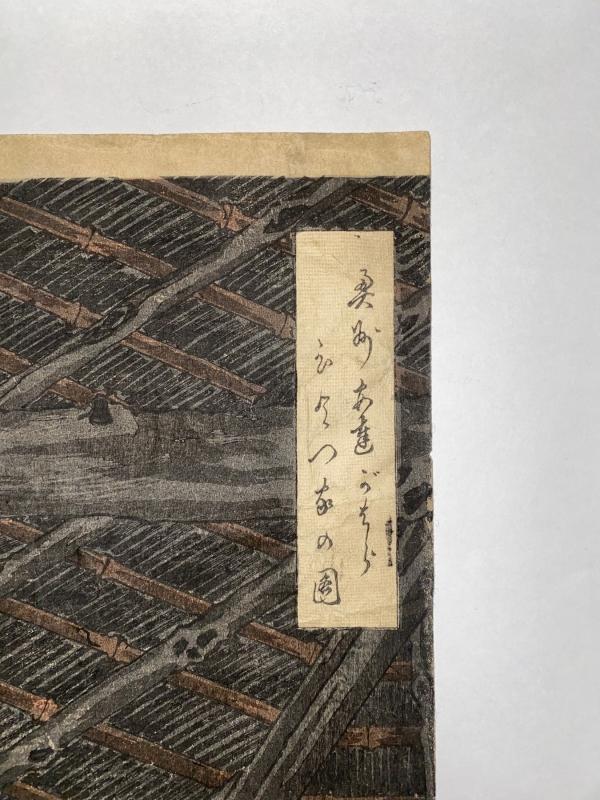 奥州安達がはら
ひとつ家の図